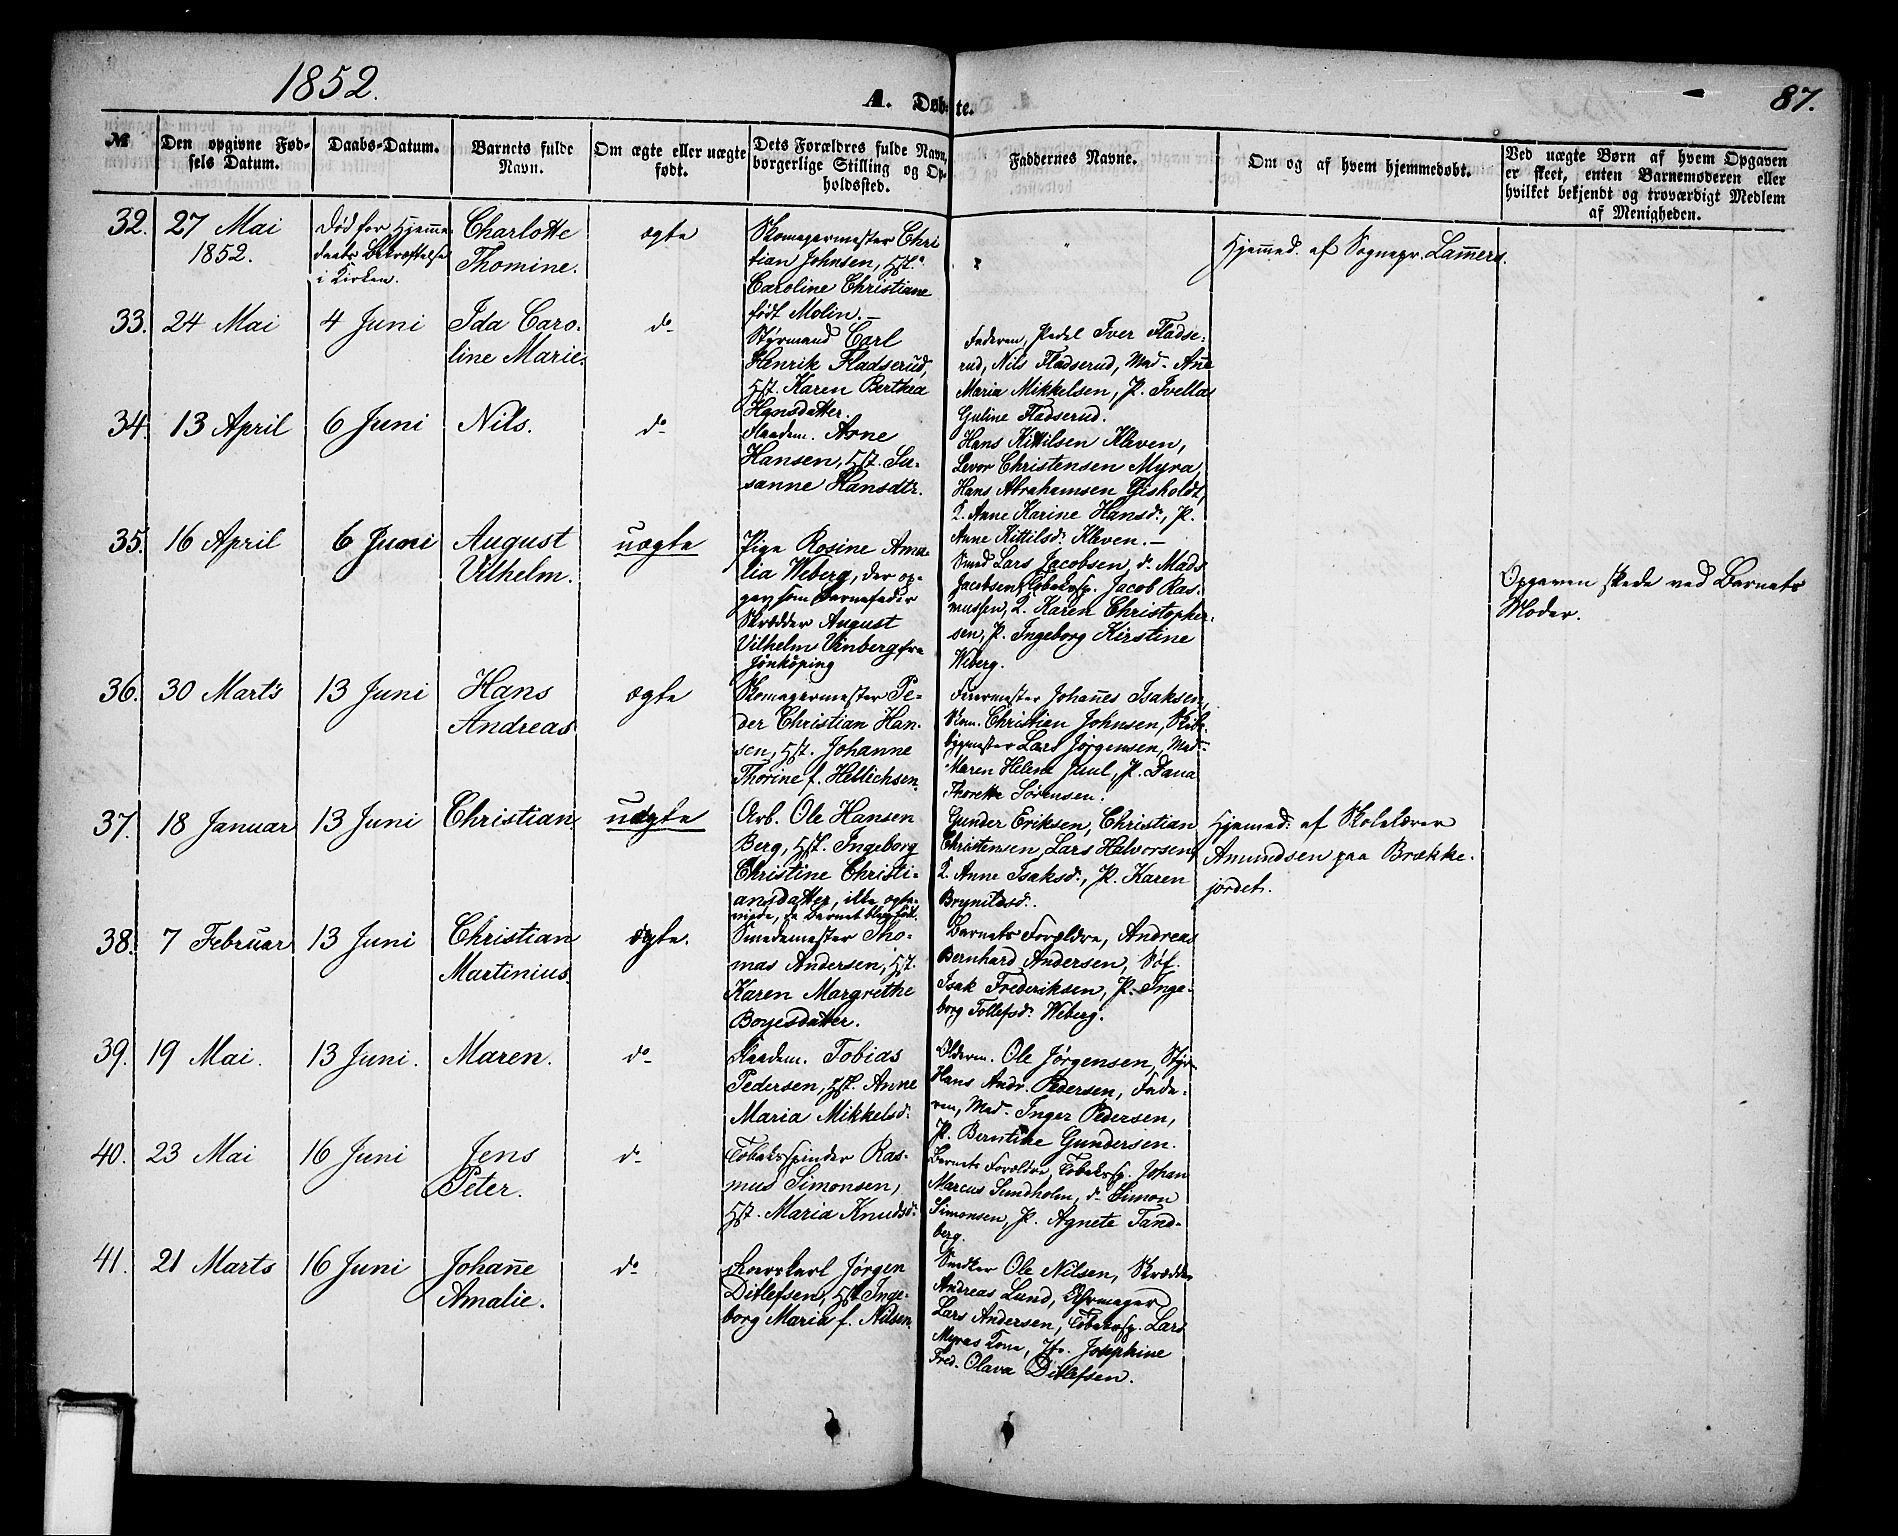 1852.
A. Døbte.
87.
№
Den opgivne Fød-
sels Datum.
Daabs-Datum.
Barnets fulde
Navn.
Om ægte eller uægte
født.
Dets Forældres fulde Navn,
borgerlige Stilling og Op-
holdssted.
Faddernes Navne.
Om og af hvem hjemmedøbt.
Ved uægte Børn af hvem Opgaven
er skeet, enten Barnemoderen eller
hvilket bekjendt og troværdigt Medlem
af Menigheden.
32.
27 Mai
1852.
Død før Hjemme
daabs Bekræftelse
i Kirken.
Charlotte
Thomine.
ægte
Skomagermester Chri
tian Johnsen, Hst.
Caroline Christiane
født Molin.—
"
Hjemmed. af Sognepr. Lammers.
33.
24 Mai
4 Juni
Ida Caro-
line Marie.
do
Styrmand Carl
Henrik Fladserud,
Hst. Karen Berthea
Hansdatter.
Faderen, Pedel Iver Fladse-
rud, Nils Fladserud, Mad. Ane
Maria Mikkelsen, P. Tvella
Guline Fladserud.
34.
13 April
6 Juni
Nils.
do
Flaadem. Arne
Hansen, Hst. Su-
sanne Hansdtr.
Hans Kittilsen Kleven,
Levor Christensen Myra,
Hans Abrahamsen Gisholdt,
K. Anne Karine Hansd., P.
Anne Kittilsd. Kleven.—
35.
16 April
6 Juni
August
Vilhelm.
uægte
Pige Rosine Ama-
lia Weberg, der op-
gav som Barnefader
Skrædder August
Vilhelm Vinberg fra
Jönköping
Smed Lars Jacobsen, do Mads
Jacobsen, Tobaksp. Jacob Ras-
mussen, K. Karen Christopher-
sen, P. Ingeborg Kirstine
Weberg.
Opgaven skede ved Barnets
Moder.
36.
30 Marts
13 Juni
Hans
Andreas
ægte
Skomagermester Pe-
der Christian Han-
sen, Hst. Johanne
Thorine f. Hellichsen.
Farermester Johannes Isaksen,
Skom. Christian Johnsen, Skib-
bygmester Lars Jørgensen, Mad.
Maren Helene Juul, P. Dana
Thorette Sørensen.
37.
18 Januar
13 Juni
Christian.
uægte
Arb. Ole Hansen
Berg, Hst. Ingeborg
Christine Christi-
ansdatter, ikke ægte-
viede, da Barnet blev født.
Gunder Eriksen, Christian
Christensen, Lars Halvorsen,
K. Anne Isaksd., P. Karen
Brynildsd.
Hjemmed. af Skolelærer
Amundsen paa Brække-
jordet.
38.
7 Februar
13 Juni
Christian
Martinius.
ægte.
Smedemester Tho-
mas Andersen, Hst.
Karen Margrethe
Boyesdatter.
Barnets Forældre, Andreas
Bernhard Andersen, Søf.
Isak Frederiksen, P. Inge-
borg Tollefsd. Weberg.
39.
19 Mai.
13 Juni.
Maren.
do
Flaadem. Tobias
Pedersen, Hst. Anne
Maria Mikkelsd.
Olderm. Ole Jørgensen, Styr-
Hans Andr. Pedersen, Fade-
ren, Mad. Inger Pedersen,
P. Berntine Gundersen.
40.
23 Mai
16 Juni
Jens
Peter.
do
Tobaksspinder Ras-
mus Simonsen,
Hst. Maria Knudsd.
Barnets Forældre, Tobaksp. Johan
Marcus Sundholm, do Simon
Simonsen, P. Agnete Tand-
berg.
41.
21 Marts
16 Juni
Johanne
Amalie.
do
Jørgen
Ditlefsen, Hst. Inge-
borg Maria f. Nilsen.
Snedker Ole Nilsen, Skrædder
Andreas Lund, Uhrmager
Lars Andersen, Tobaksp. Lars
Myras Kone, Jfr. Josephine
Fred. Olava Ditlefsen.